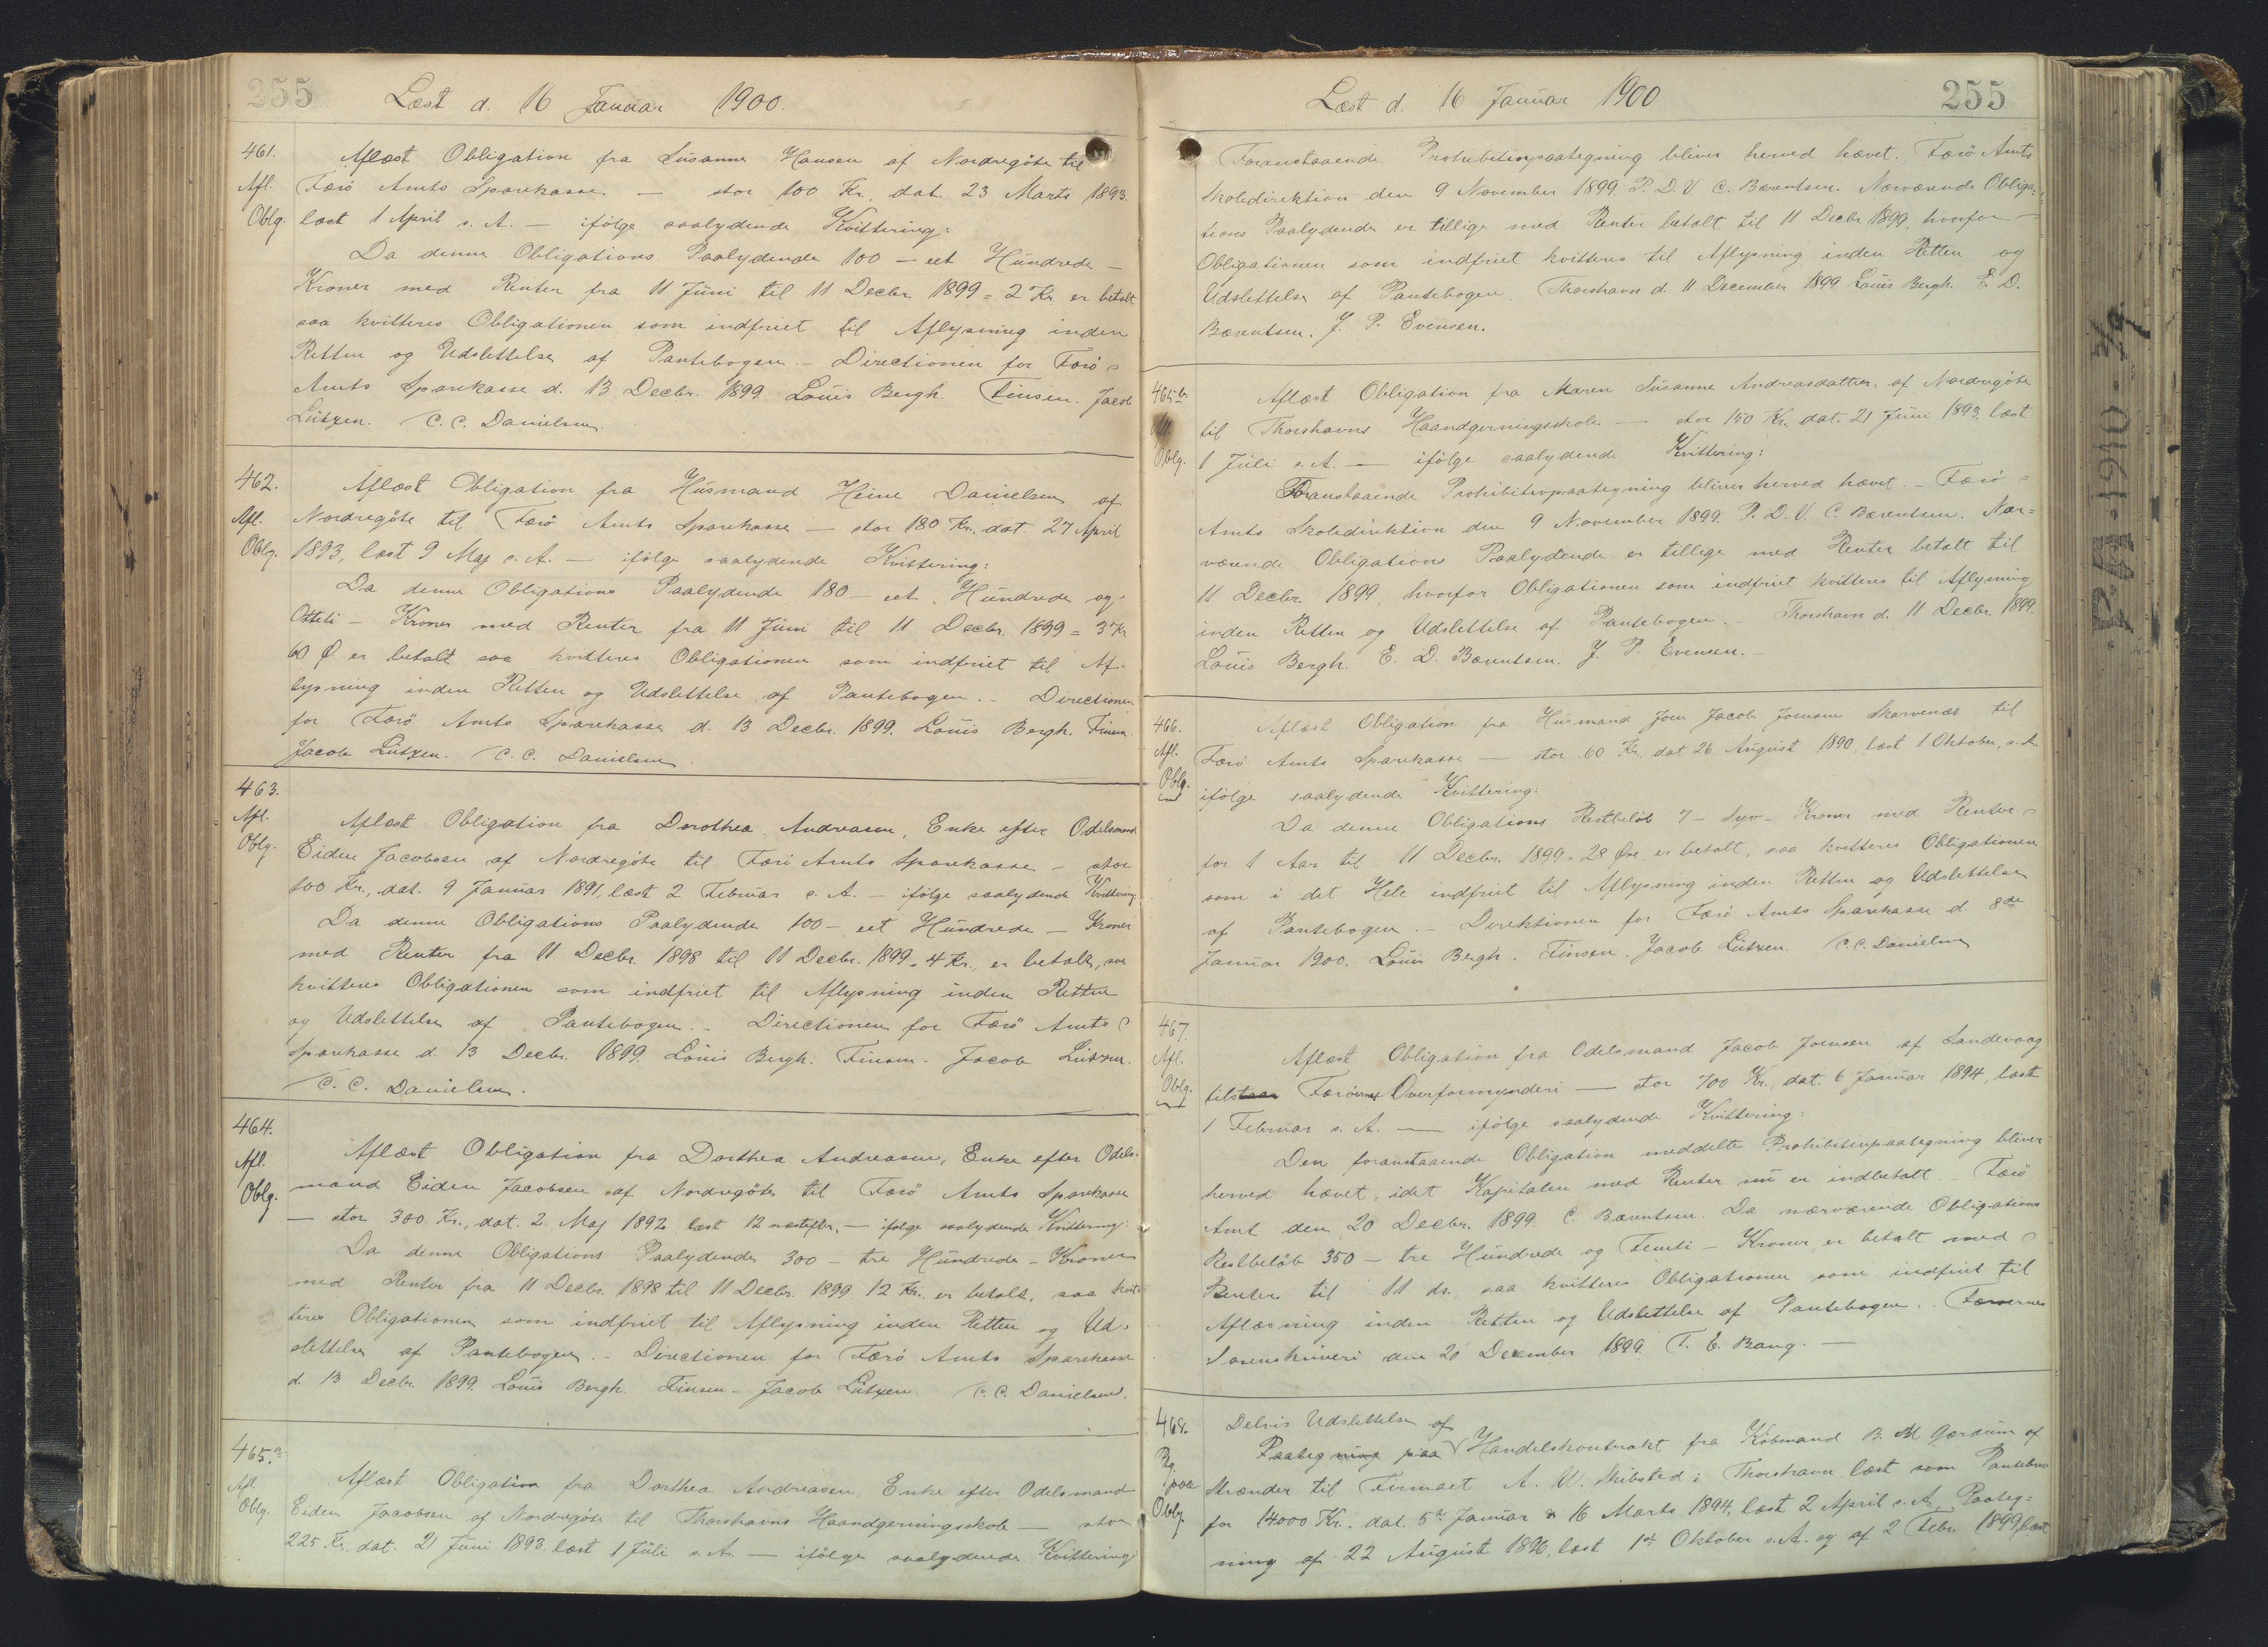 255 Læst d. 16 Januar 1900.
461. Aflæst Obligation fra Susanne Hansen af Nordregöte til
Afl. Færö Amts Sparekasse — stor 100 Kr. dat. 23 Marts 1893.
Oblg. læst 1 April s. A. — ifölge saalydende Kvittering:
Da denne Obligations Paalydende 100 — eet Hundrede —
Kroner med Renter fra 11 Juni til 11 Decbr. 1899 = 2 Kr er betalt
saa kvitteres Obligationen som indfriet til Aflysning inden
Retten og Udslettelse af Pantebogen. — Directionen for Færö
Amts Sparekasse d. 13 Decbr. 1899 Louis Bergh. Finsen. Jacob
Lützen. C. C. Danielsen.
462. Aflæst Obligation fra Husmand Heine Danielsen af
Afl. Nordregöte til Færö Amts Sparekasse — stor 180 Kr. dat. 27 April
Oblg. 1893, læst 9 Maj s. A. — ifölge saalydende Kvittering:
Da denne Obligations Paalydende 180 — eet Hundrede og
Otteti — Kroner med Renter fra 11 Juni til 11 Decbr. 1899 = 3 Kr
60 Ø. er betalt saa kvitteres Obligationen som indfriet til Af-
lysning inden Retten og Udslettelse af Pantebogen. — Directionen
for Færö Amts Sparekasse d. 13 Decbr. 1899. Louis Bergh. Finsen.
Jacob Lützen. C. C. Danielsen.
463.
Afl. Aflæst Obligation fra Dorothea Andreasen, Enke efter Odelsmand
Oblg. Eiden Jacobsen af Nordregöte til Færö Amts Sparekasse — stor
100 Kr., dat. 9 Januar 1891, læst 2 Februar s. A. — ifölge saalydende Kvittering:
Da denne Obligations Paalydende 100 — eet Hundrede — Kroner
med Renter fra 11 Decbr. 1898 til 11 Decbr. 1899 = 4 Kr., er betalt, saa
kvitteres Obligationen som indfriet til Aflysning inden Retten
og Udslettelse af Pantebogen. — Directionen for Færö Amts
Sparekasse d. 13 Decbr. 1899. Louis Bergh. Finsen. Jacob Lützen.
C. C. Danielsen.
464.
Afl. Aflæst Obligation fra Dorthea Andreasen, Enke efter Odels-
Oblg. mand Eiden Jacobsen af Nordregöte til Færö Amts Sparekasse
— stor 300 Kr., dat. 2 Maj 1892 læst 12 næstefter, — ifölge saalydende Kvittering:
Da denne Obligations Paalydende 300 — tre Hundrede — Kroner
med Renter fra 11 Decbr. 1898 til 11 Decbr. 1899 12 Kr. er betalt, saa kvit-
teres Obligationen som indfriet til Aflysning inden Retten og Ud-
slettelse af Pantebogen. — Directionen for Færö Amts Sparekasse
d. 13 Decbr. 1899. Louis Bergh. Finsen. Jacob Lützen. C. C. Danielsen.
465.a
Afl. Aflæst Obligation fra Dorthea Andreasen, Enke efter Odelsmand
Oblg. Eiden Jacobsen af Nordregöte til Thorshavns Haandgerningsskole — stor
225 Kr., dat. 21 Juni 1893. læst 1 Juli s. A. — ifölge saalydende Kvittering
Læst d. 16 Januar 1900 255
Foranstaaende Prohibitivpaategning bliver herved hævet. Færö Amts
Skoledirektion den 9 November 1899. P. D. V C. Bærentsen. Nærværende Obliga-
tions Paalydende er tillige med Renter betalt til 11 Decbr 1899, hvorfor
Obligationen som indfriet kvitteres til Aflysning inden Retten og
Udslettelse af Pantebogen. Thorshavn d. 11 December 1899 Louis Bergh. E. D.
Bærentsen. J. P. Evensen.
465.b. Aflæst Obligation fra Maren Susanne Andreasdatter af Nordregöte
til Thorshavns Haandgerningsskole — stor 150 Kr. dat. 21 Juni 1893, læst
Oblg. 1 Juli s. A. — ifölge saalydende Kvittering:
Foranstaaende Prohibitivpaategning bliver herved hævet. — Færö
Amts Skoledirektion den 9 November 1899. P. D. V. C. Bærentsen. Nær-
værende Obligations Paalydende er tillige med Renter betalt til
11 Decbr. 1899, hvorfor Obligationen som indfriet kvitteres til Aflysning
inden Retten og Udslettelse af Pantebogen. — Thorshavn d. 11 Decbr. 1899.
Louis Bergh. E. D. Bærentsen. J. P. Evensen. —
466. Aflæst Obligation fra Husmand Joen Jacob Joensen Skarvenæs til
Afl. Færö Amts Sparekasse — stor 60 Kr. dat 26 August 1890, læst 1 Oktober, s. A.
Oblg. ifölge saalydende Kvittering:
Da denne Obligations Restbelöb 7 — Syv — Kroner med Renter
for 1 Aar til 11 Decbr. 1899 = 28 Øre, er betalt, saa kvitteres Obligationen
som i det Hele indfriet til Aflysning inden Retten og Udslettelse
af Pantebogen. — Direktionen for Færö Amts Sparekasse d. 8de
Januar 1900. Louis Bergh. Finsen. Jacob Lützen. C. C. Danielsen
467.
Afl. Aflæst Obligation fra Odelsmand Jacob Joensen af Sandevaag
Oblg. til Færöernes Overformynderi — stor 700 Kr., dat. 6 Januar 1894, læst
1 Februar s. A. — ifölge saalydende Kvittering:
Den foranstaaende Obligation meddelte Prohibitivpaategning bliver
herved hævet, idet Kapitalen med Renter nu er indbetalt. — Færö
Amt den 20 Decbr. 1899. C. Bærentsen. Da nærværende Obligations
Restbelöb 350 — tre Hundrede og Femti — Kroner, er betalt med
Renter til 11 ds., saa kvitteres Obligationen som indfriet til
Aflæsning inden Retten og Udslettelse af Pantebogen. Færoernes
Sorenskriveri den 20 December 1899. T. E. Bang. —
468. Delvis Udslettelse af
Paategning paa Handelskontrakt fra Köbmand B. M.
paa Strænder til Firmaet A. W. Skibsted i Thorshavn, læst som Pantebrev
Oblg for 14000 Kr., dat. 5te Januar & 16 Marts 1894, læst 2 April s. A., Paateg-
ning af 22 August 1896, læst 1ste Oktober s. A. og af 2 Febr. 1899, læst